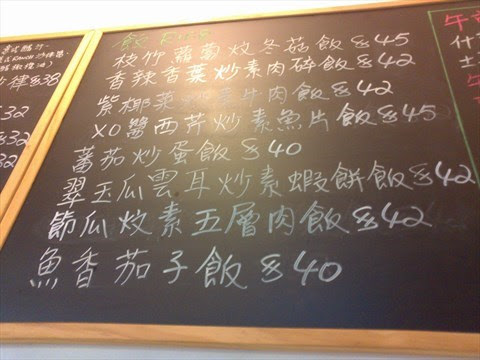 飯 Rice
枝竹蘿蔔炆冬菇飯$45
香辣香葉炒素肉碎飯$42
紫椰菜 片肉飯$42
XO醬西芹炒素魚片飯$45
蕃茄炒蛋飯$40
翠玉瓜雲耳炒素蝦餅飯$42
節瓜炆素五層肉飯$42
魚香茄子飯$40
$38
32
$32
32
午
什
土